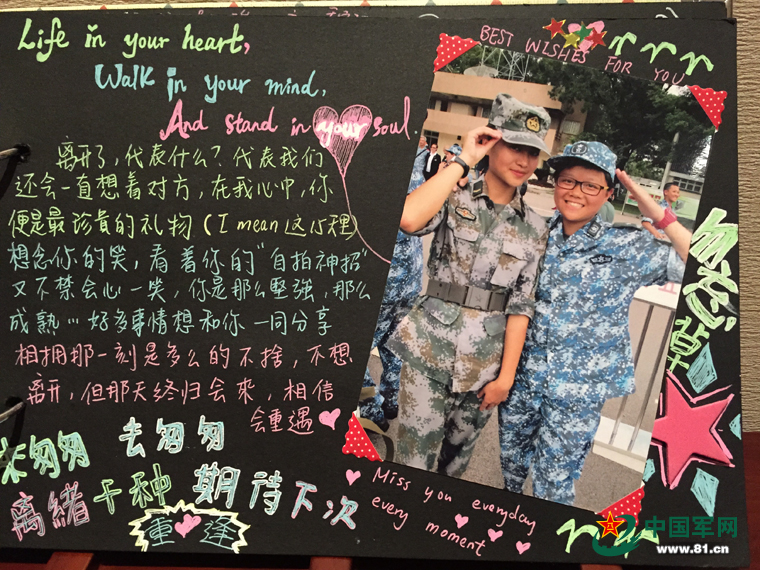 Life in your heart,
Walk in your mind,
And stand in your soul.
BEST WISHES FOR YOU
离开了，代表什么？代表我们
还会一直想着对方，在我心中，你
便是最珍貴的礼物（I mean 这份理）
想念你的笑，看着你的"自拍神招"
又不禁会心一笑，你是那么堅強，那么
成熟…好多事情想和你一同分享
相拥那一刻是多么的不捨，不想
离开，但那天终归会来，相信
会重遇
勿忘草
来匆匆 去匆匆
离緒千种 期待下次
重逢
Miss you everyday
every moment
中国军网
www.81.cn